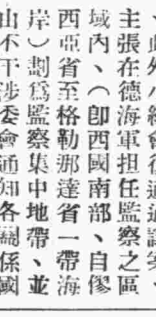 、此外小組會後通過議案、
主張在德海軍担任監察之區
域內、（卽西國南部、自傻
西亞省至格勒那達省一帶海
岸）劃爲監察集中地帶、並
由不干涉委會通知各關係國